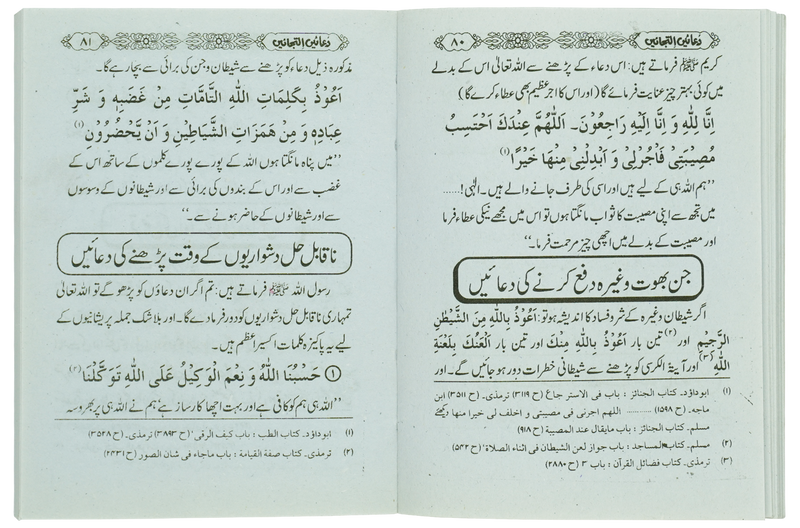 ۸۰ دعائیں التجائیں
کریم ﷺ فرماتے ہیں: اس دعاء کے پڑھنے سے اللہ تعالی اس کے بدلے
میں کوئی بہتر چیز عنایت فرمائے گا (اور اس کا اجر عظیم بھی عطاء کرے گا)
اِنَّا لِلّٰهِ وَ اِنَّا اِلَيْهِ رَاجِعُوْنَ۔ اَللّٰهُمَّ عِنْدَكَ اَحْتَسِبُ
مُصِيْبَتِىْ فَاْجُرْلِىْ وَ اَبْدِلْنِىْ مِنْهَا خَيْرًا (۱)
”ہم اللہ ہی کے لیے ہیں اور اسی کی طرف جانے والے ہیں۔ الٰہی!......
میں تجھ سے اپنی مصیبت کا ثواب مانگتا ہوں تو اس میں مجھے نیکی عطاء فرما
اور مصیبت کے بدلے میں اچھی چیز مرحمت فرما۔“
جن بھوت وغیرہ دفع کرنے کی دعائیں
اگر شیطان وغیرہ کے شر و فساد کا اندیشہ ہو تو: اَعُوْذُ بِاللّٰهِ مِنَ الشَّيْطٰنِ
الرَّجِيْمِ اور (۲) تین بار اَعُوْذُ بِاللّٰهِ مِنْكَ اور تین بار اَلْعَنُكَ بِلَعْنَةِ
اللّٰهِ (۳) اور آیۃ الکرسی کو پڑھنے سے شیطانی خطرات دور ہو جائیں گے۔ اور
(۱) ابوداؤد۔ کتاب الجنائز : باب فی الاستر جاع (ح ۳۱۱۹) ترمذی۔ (ح ۳۵۱۱) ابن
ماجہ۔ (ح ۱۵۹۸) ......... اللهم اجرنی فی مصیبتی و اخلف لی خیرا منها دیکھئے
مسلم۔ کتاب الجنائز : باب مایقال عند المصیبة (ح ۹۱۸)
(۲) مسلم۔ کتاب المساجد : باب جواز لعن الشیطان فی اثناء الصلاة‘ (ح ۵۴۲)
(۳) ترمذی۔ کتاب فضائل القرآن : باب ۳ (ح ۲۸۸۰)
۸۱ دعائیں التجائیں
مذکورہ ذیل دعاء کو پڑھنے سے شیطان و جن کی برائی سے بچا رہے گا۔
اَعُوْذُ بِكَلِمَاتِ اللّٰهِ التَّامَّاتِ مِنْ غَضَبِهٖ وَ شَرِّ
عِبَادِهٖ وَ مِنْ هَمَزَاتِ الشَّيَاطِيْنِ وَ اَنْ يَّحْضُرُوْنِ (۱)
”میں پناہ مانگتا ہوں اللہ کے پورے پورے کلموں کے ساتھ اس کے
غضب سے اور اس کے بندوں کی برائی سے اور شیطانوں کے وسوسوں
سے اور شیطانوں کے حاضر ہونے سے۔“
ناقابل حل دشواریوں کے وقت پڑھنے کی دعائیں
رسول اللہ ﷺ فرماتے ہیں: تم اگر ان دعاؤں کو پڑھو گے تو اللہ تعالی
تمہاری ناقابل حل دشواریوں کو دور فرما دے گا۔ اور بلاشک جملہ پریشانیوں کے
لیے یہ پاکیزہ کلمات اکسیر اعظم ہیں۔
① حَسْبُنَا اللّٰهُ وَ نِعْمَ الْوَكِيْلُ عَلَى اللّٰهِ تَوَكَّلْنَا (۲)
”اللہ ہی ہم کو کافی ہے اور بہت اچھا کارساز ہے‘ ہم نے اللہ ہی پر بھروسہ
(۱) ابوداؤد۔ کتاب الطب : باب کیف الرقی‘ (ح ۳۸۹۳) ترمذی۔ (ح ۳۵۲۸)
(۲) ترمذی۔ کتاب صفة القیامة : باب ماجاء فی شان الصور (ح ۲۴۳۱)